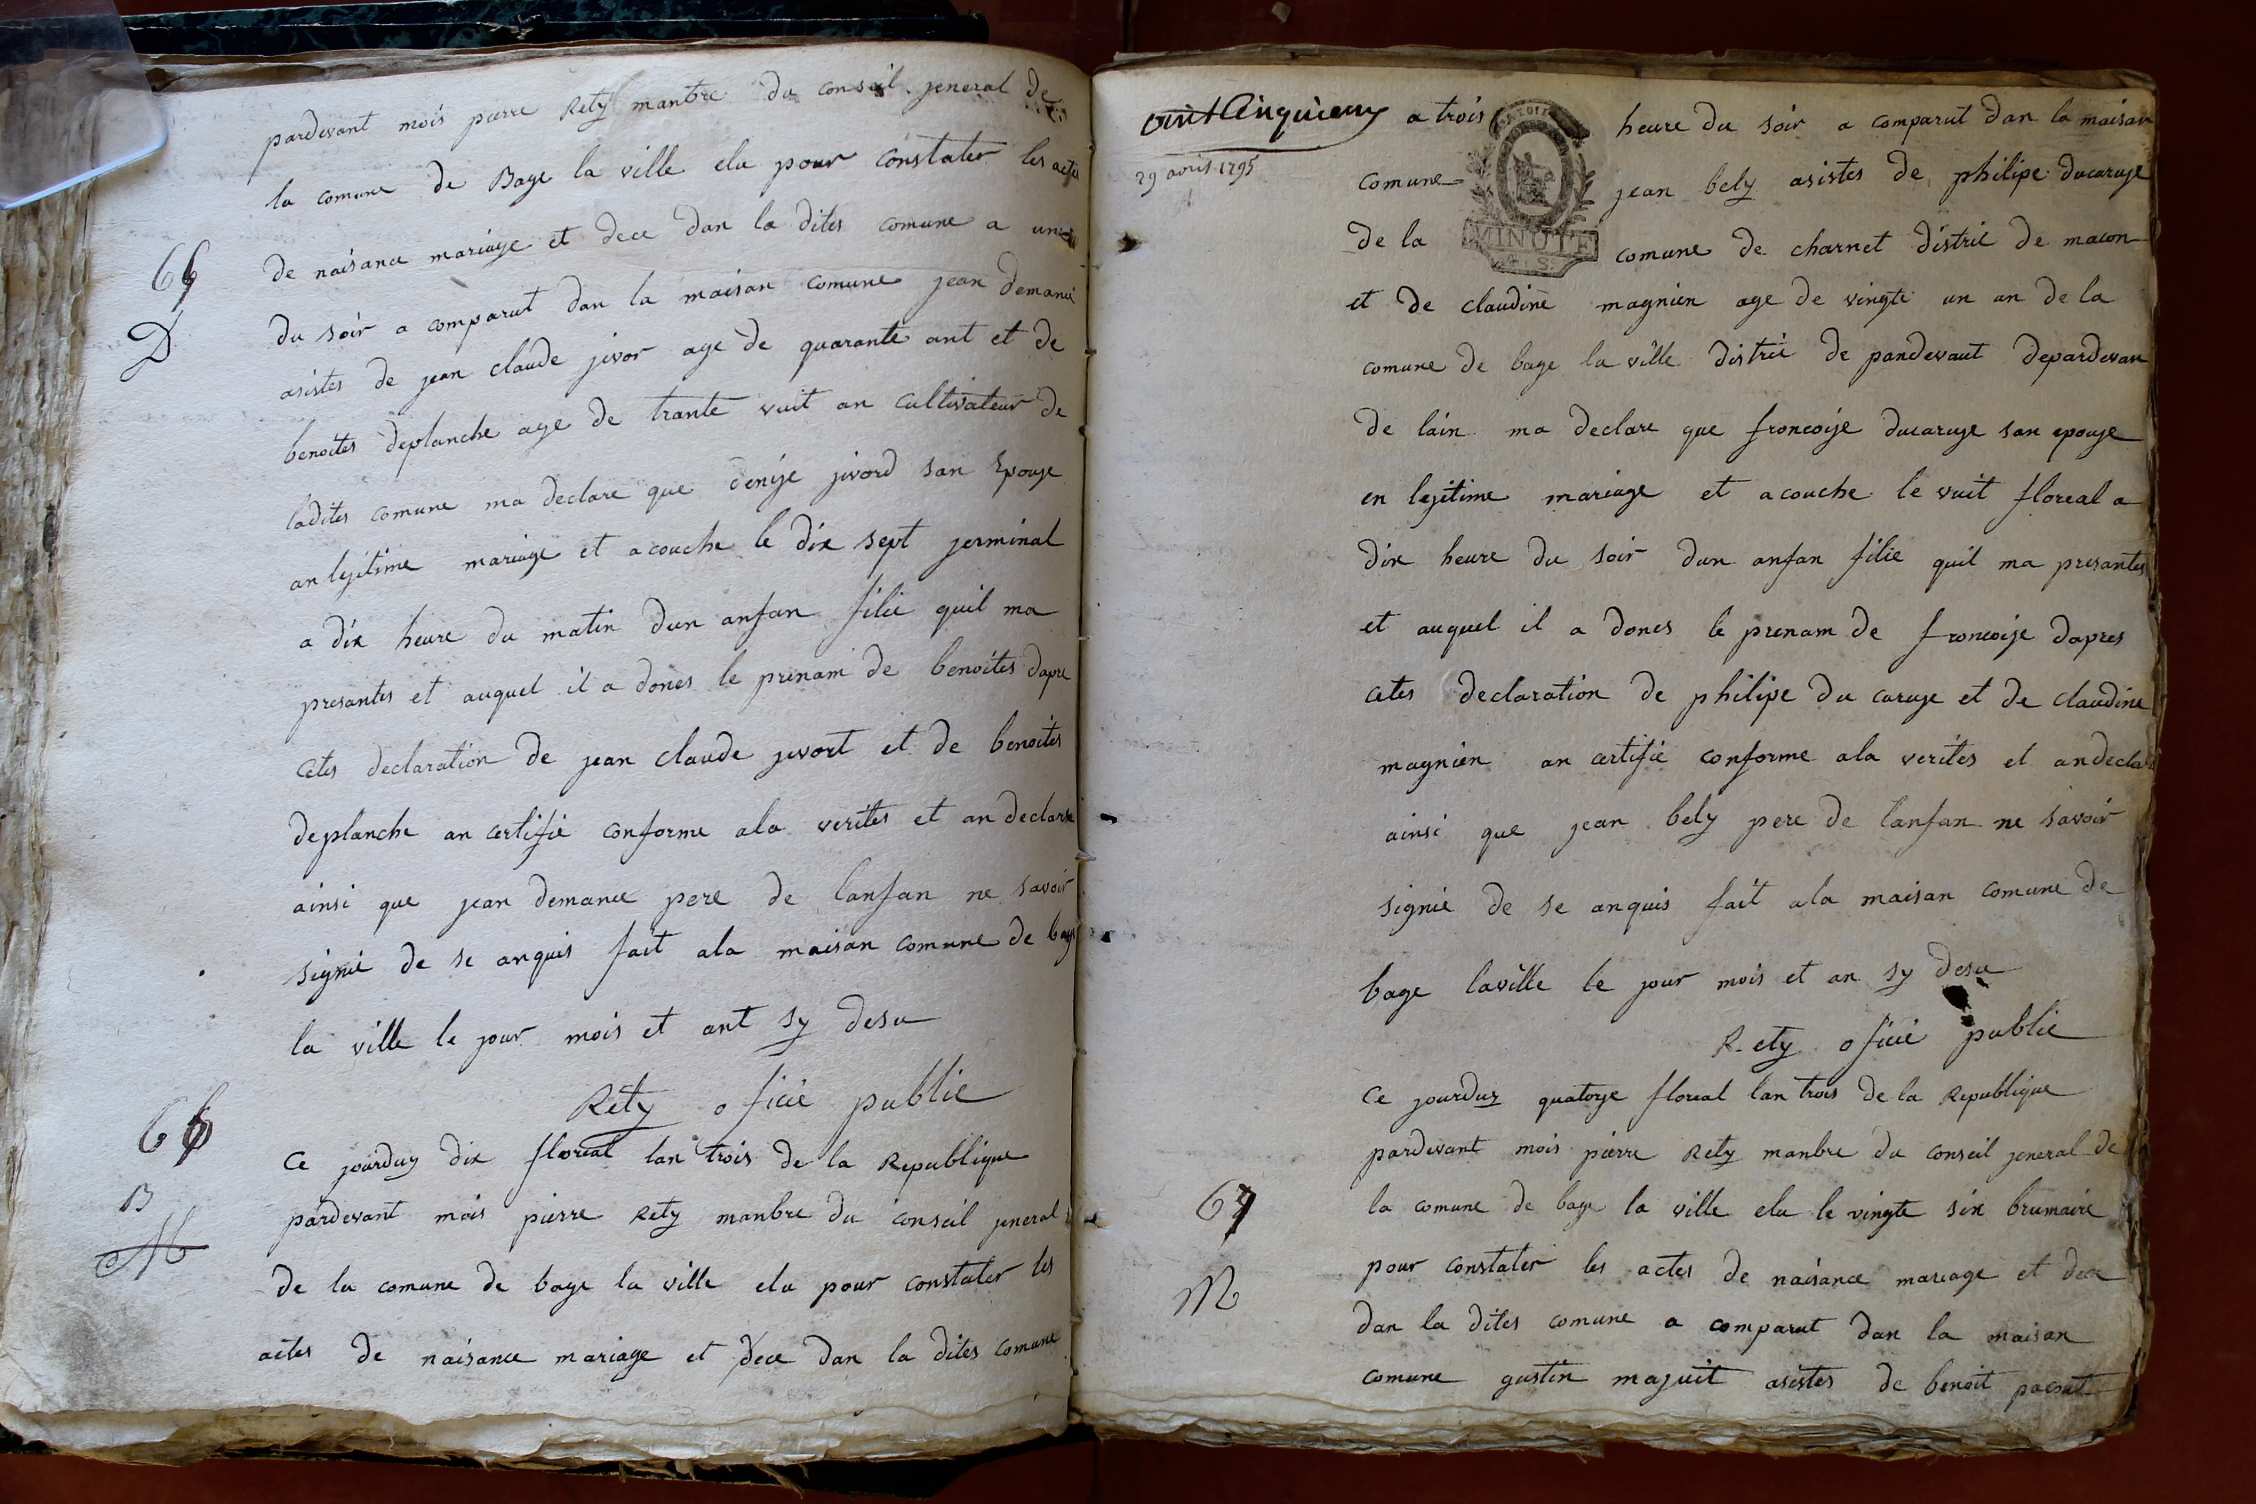 pardevant mois pierre Rety manbre du conseil jeneral de
la comune de Bage la ville elu pour constater les actes
66
de naisance mariage et dece dan la dites comune a une
D
du soir a comparut dan la maisan comune jean demance
asistes de jean claude jivor age de quarante ant et de
benoites deplanche age de trante vuit an cultivateur de
ladites comune ma declare que denije jivord san Epouje
an lejitime mariage et acouche le dix sept jerminal
a dix heure du matin dun anfan filie quil ma
presantes et auquel il a dones le prenam de benoites dapre
cetes declaration de jean claude jivort et de benoites
deplanche an certifie conforme ala verites et an declare
ainsi que jean demance pere de lanfan ne savoir
signié de se anquis fait ala maisan comune de bage
la ville le jour mois et ant sy desu
Rety oficié public
66
ce jourduy dix floreal lan trois de la Republique
B
pardevant mois pierre Rety manbre du conseil jeneral
M
de la comune de bage la ville elu pour constater les
actes de naisance mariage et dece dan la dites comune
vint Cinquieme a trois heure du soir a comparut dan la maisan
29 avril 1795
comune jean bely asistes de philipe ducaruge
de la comune de charnet distric de macon
MINUTE
et de claudine magnien age de vingte un an de la
comune de bage la ville distric de pandevaut depardevan
de lain ma declare que francoije ducaruge san epouje
en lejitime mariage et acouche le vuit floreal a
dix heure du soir dun anfan filie quil ma presantes
et auquel il a dones le prenam de francoije dapres
cetes declaration de philipe du caruge et de claudine
magnien an certifie conforme ala verites et andecla
ainsi que jean bely pere de lanfan ne savoir
signié de se anquis fait ala maisan comune de
bage laville le jour mois et an sy desu
Rety oficié public
ce jourduy quatorje floreal lan trois de la Republique
pardevant mois pierre Rety manbre du conseil jeneral de
67
la comune de bage la ville elu le vingte six brumaire
pour constater les actes de naisance mareage et dece
M
dan la dites comune a comparut dan la maisan
comune gustin majuit asistes de benoit pacout